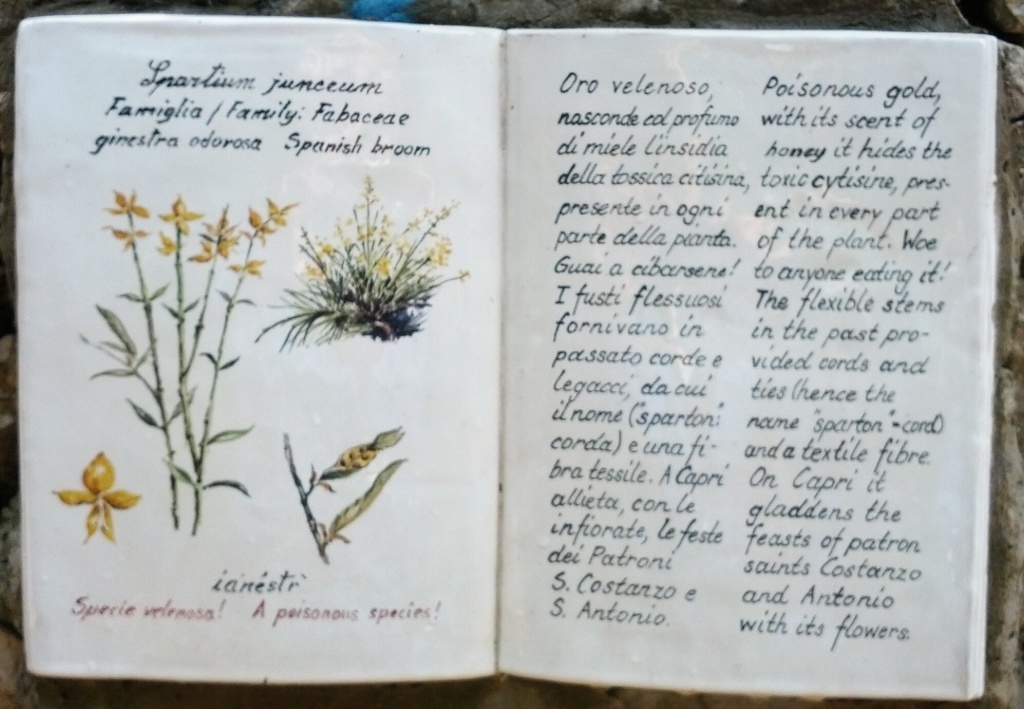 Spartium junceum
Famiglia / Family: Fabaceae
ginestra odorosa Spanish broom
ianéstr
Specie velenosa! A poisonous species!
Oro velenoso,
nasconde col profumo
di miele l'insidia
della tossica citisina,
presente in ogni
parte della pianta.
Guai a cibarsene!
I fusti flessuosi
fornivano in
passato corde e
legacci, da cui
il nome ("sparton":
corda) e una fi-
bra tessile. A Capri
allieta, con le
infiorate, le feste
dei Patroni
S. Costanzo e
S. Antonio.
Poisonous gold,
with its scent of
honey it hides the
toxic cytisine, pres-
ent in every part
of the plant. Woe
to anyone eating it!
The flexible stems
in the past pro-
vided cords and
ties (hence the
name "sparton"-cord)
and a textile fibre.
On Capri it
gladdens the
feasts of patron
saints Costanzo
and Antonio
with its flowers.